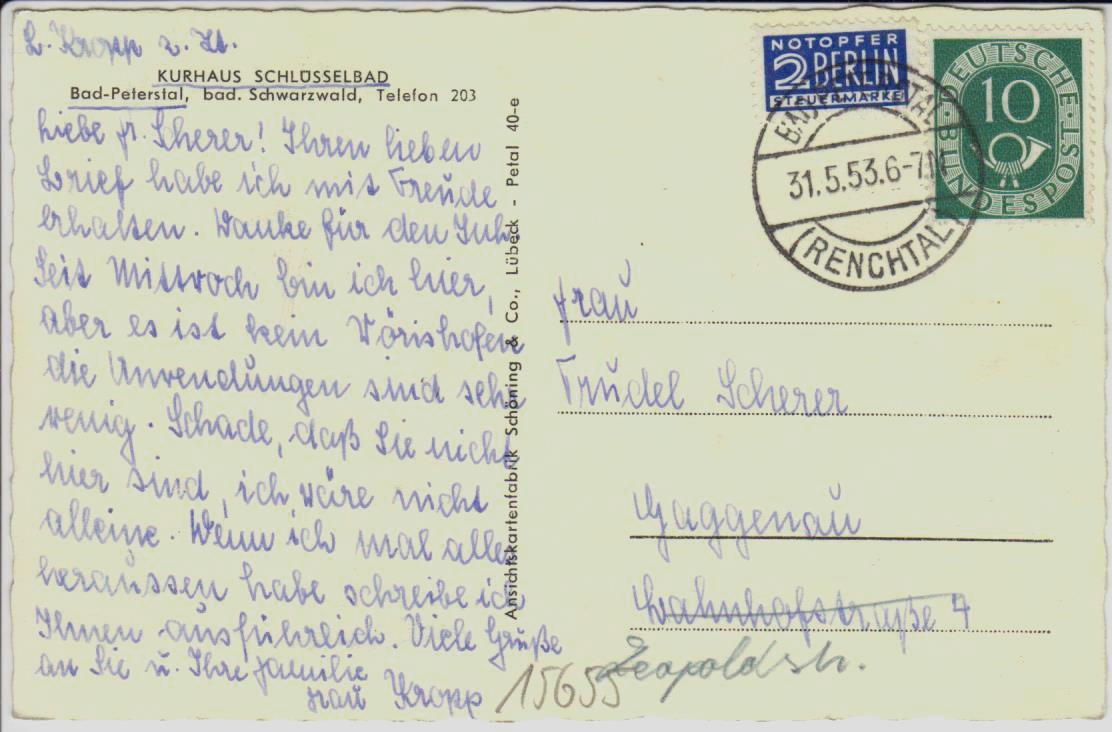 L. Kropp z. Zt.
KURHAUS SCHLÜSSELBAD
Bad-Peterstal, bad. Schwarzwald, Telefon 203
Liebe Fr. Scherer! Ihren lieben
Brief habe ich mit Freude
erhalten. Danke für den
Seit Mittwoch bin ich hier,
aber es ist kein Wörishofen
die Anwendungen sind sehr
wenig. Schade, daß Sie nicht
hier sind, ich wäre nicht
alleine. Wenn ich mal alles
heraussen habe schreibe ich
Ihnen ausführlich. Viele Grüße
an Sie u. Ihre Familie
Frau Kropp
Ansichtskartenfabrik Schöning & Co., Lübeck - Petal 40-e
NOTOPFER
2 BERLIN
STEUERMARKE
DEUTSCHE BUNDESPOST
10
BAD PETERSTAL
31.5.53.6-7N
(RENCHTAL)
Frau
Trudel Scherer
Gaggenau
Bahnhofstraße 4
Leopoldstr.
15655